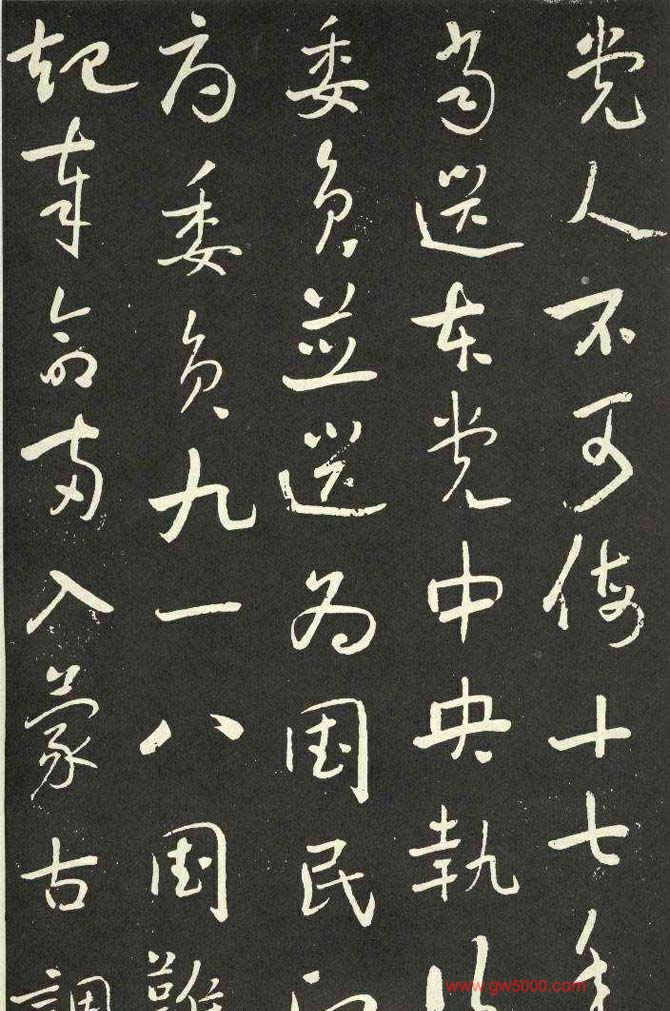 党人不可侮十七年
當選本党中央執
委員並選為國民
府委員九一八國難
起奉命兩入蒙古調
www.gw5000.com